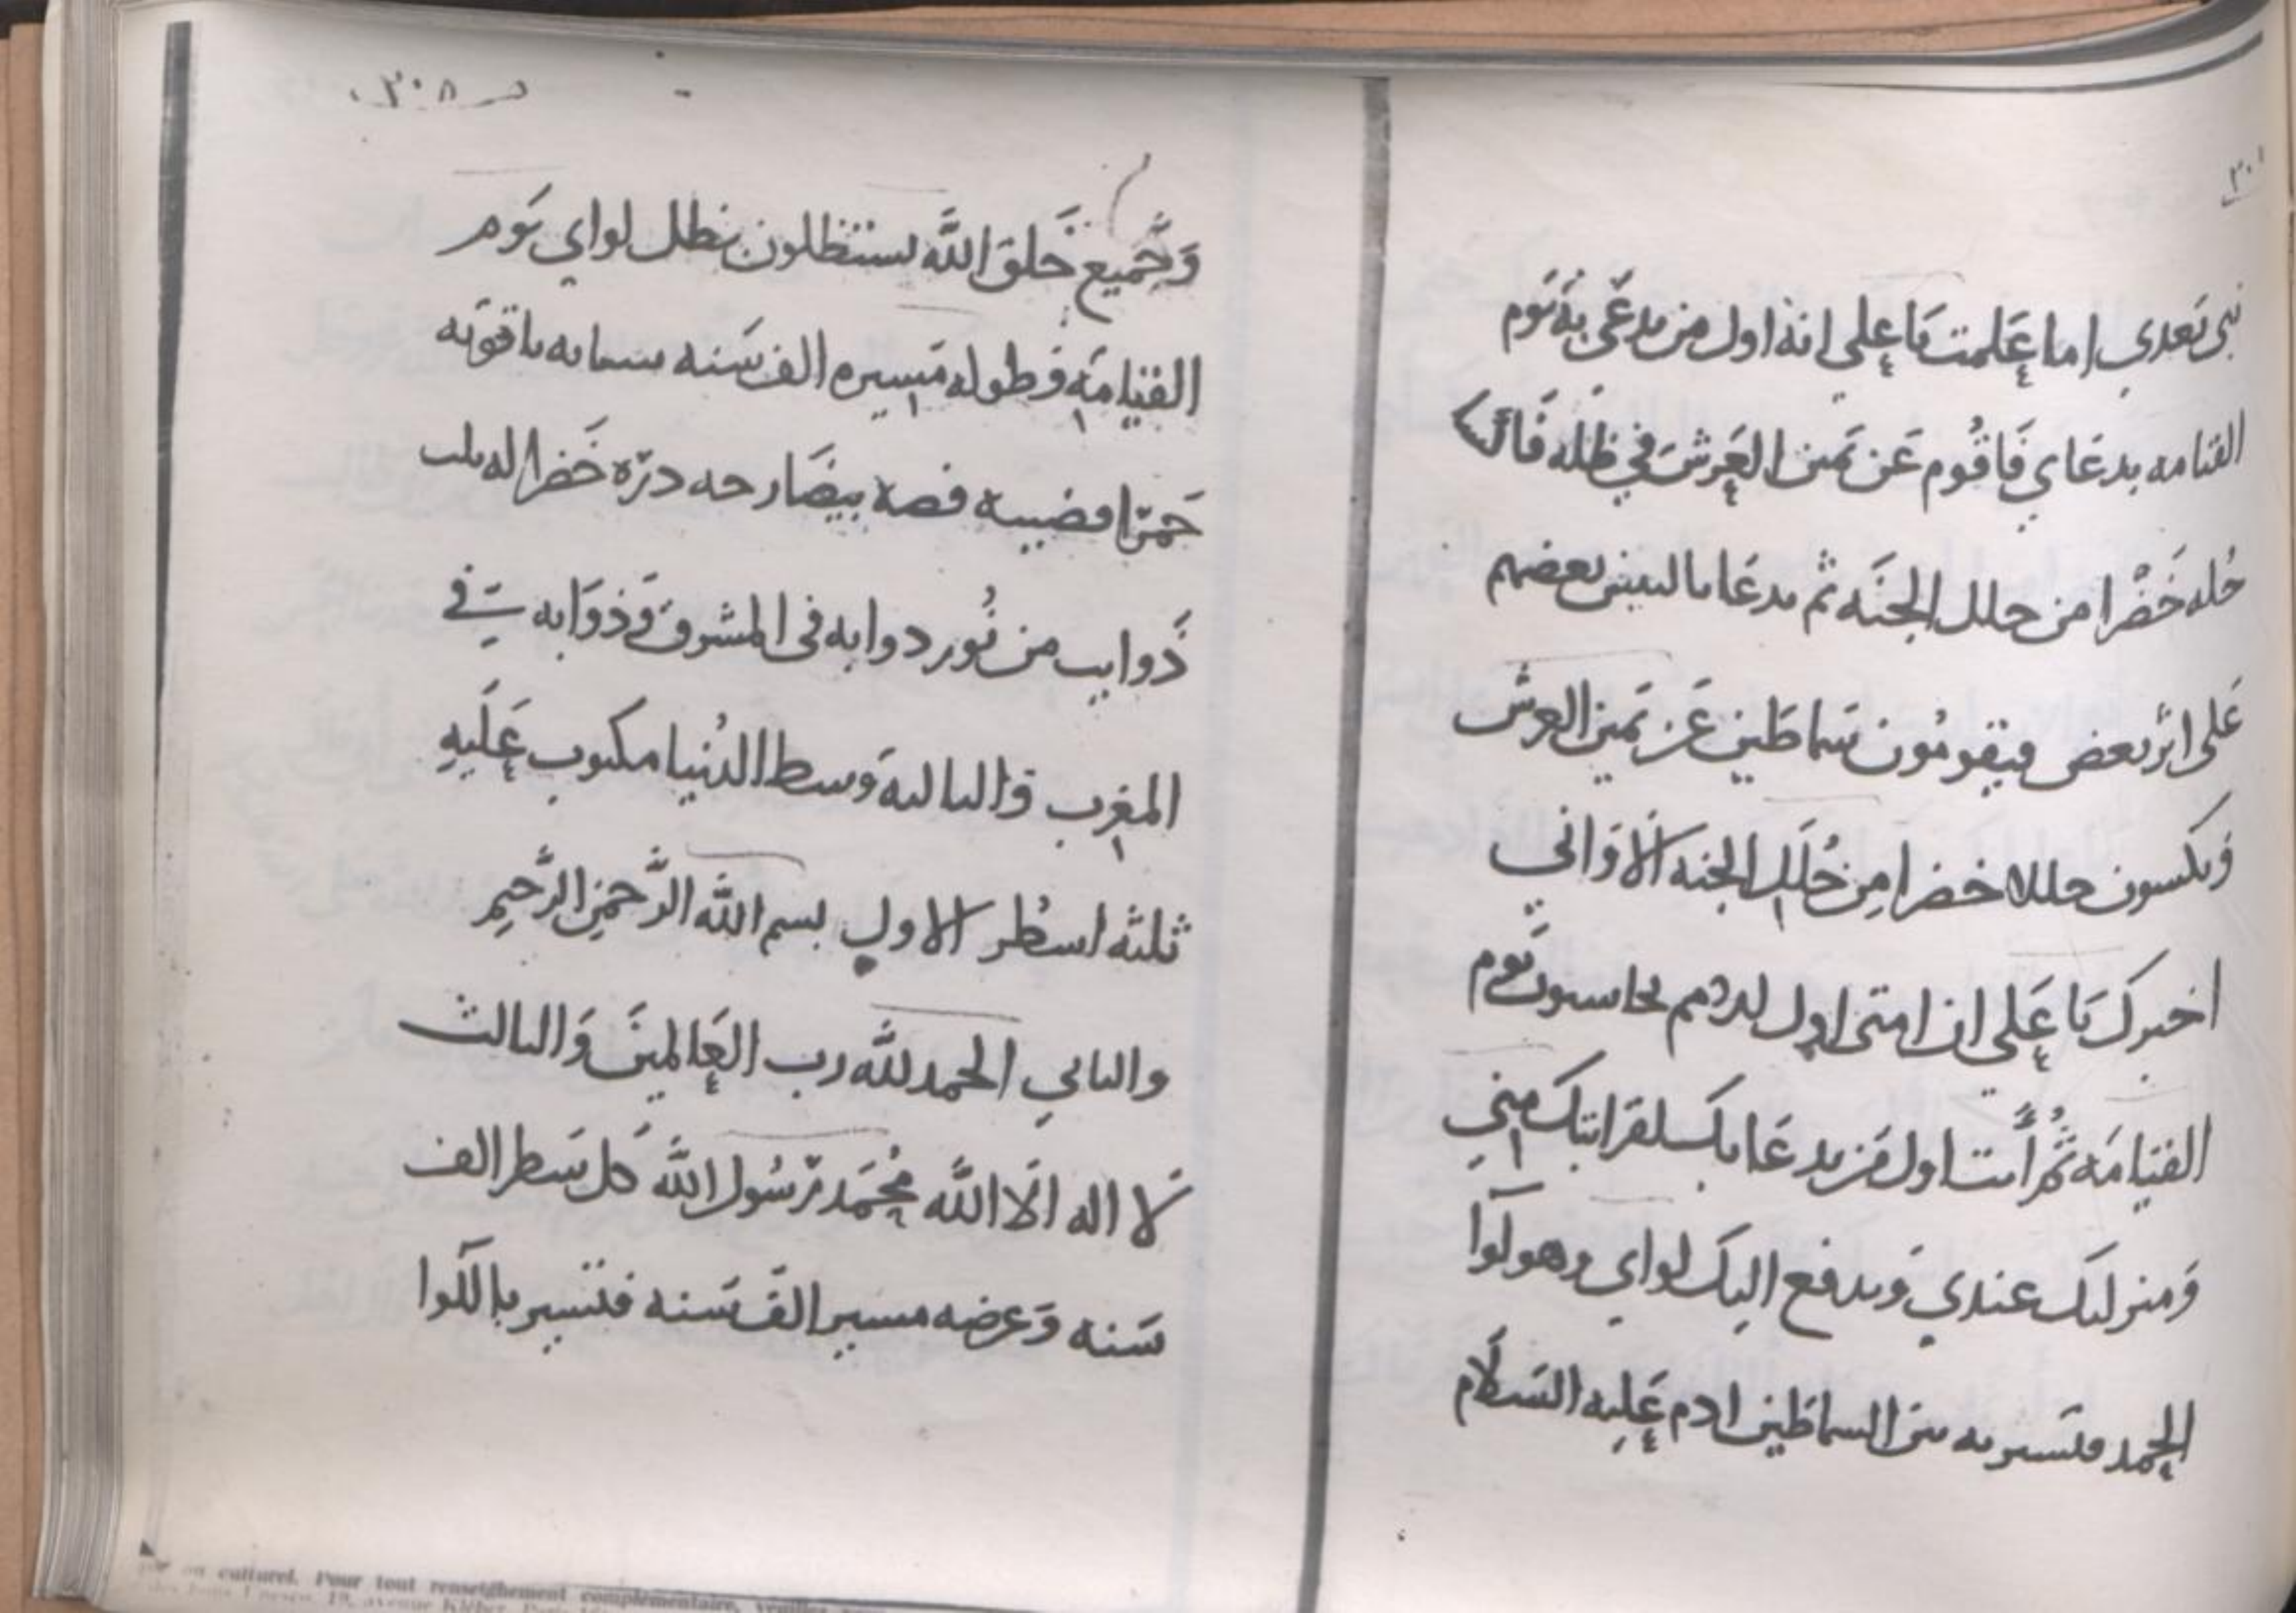 نبي بعدي اما علمت يا علي انه اول من يدعى به يوم
القيامه يدعا بي فاقوم عن يمين العرش في ظله فاكسا
حُله خَضْرا من حلل الجنَه ثم يدعَا بالنبيين بعضهم
عَلى اثر بعض فيقومُون سَماطَين عَن يَمين العرش
وَيكسون حللا خضرا مِن حُلَل الجنه الا وَاني
اخبرك يَا عَلي ان امتى اول الامم يحاسبون يَوم
القيامَه ثُمَّ أنت اول مَن يدعَا بك لقرابتك مِني
وَمنزلتك عندي وَيدفع اليك لواي وهو لوآ
الحمد فتَسير به بين السماطين ادم عَليه السَلام
٣٠٨
وَجَميع خَلق اللَّه يستظلون بظل لواي يَوم
القيامَه وَطوله مَسِيره الف سَنه سنانه ياقوته
حَمرَا قضيبه فضه بيضَا زجه درّه خَضرا له ثلث
ذَوايب من نُور ذوابه فى المشرق وَذوَابه في
المغرِب والثالثه وَسط الدُنيا مكتوب عَلَيهِ
ثلثه اسطُر الاول بسم اللَّه الرَّحمنِ الرَّحيمِ
والثاني الحمد للَّه رب العَالمينَ وَالثالث
لَا اله الَا اللَّه مُحَمَد رَسُول اللَّه كل سَطر الف
سَنه وَعرضه مسير الف سَنه فتسير بالَلوا